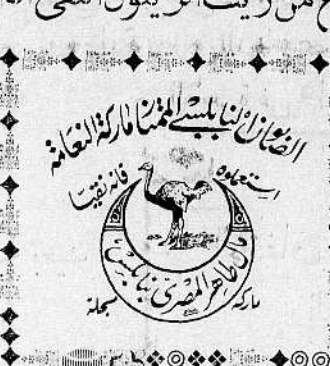 من زيت الزيتون النقي
الصابون النابلسي الممتاز ماركة النعامة
استعملوه
فانه نقيا
مال طاهر المصري نابلس
ماركة
مسجلة